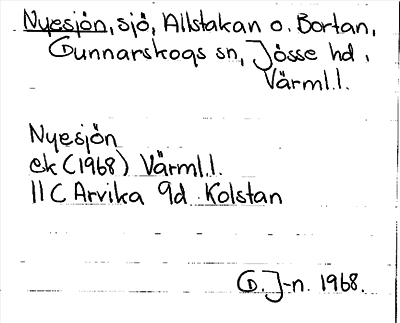 Nyesjön, sjö, Allstakan o. Bortan,
Gunnarskogs sn, Jösse hd.
Värml.l.
Nyesjön
ek (1968) Värml.l.
11 C Arvika 9d Kolstan
G. J-n. 1968.